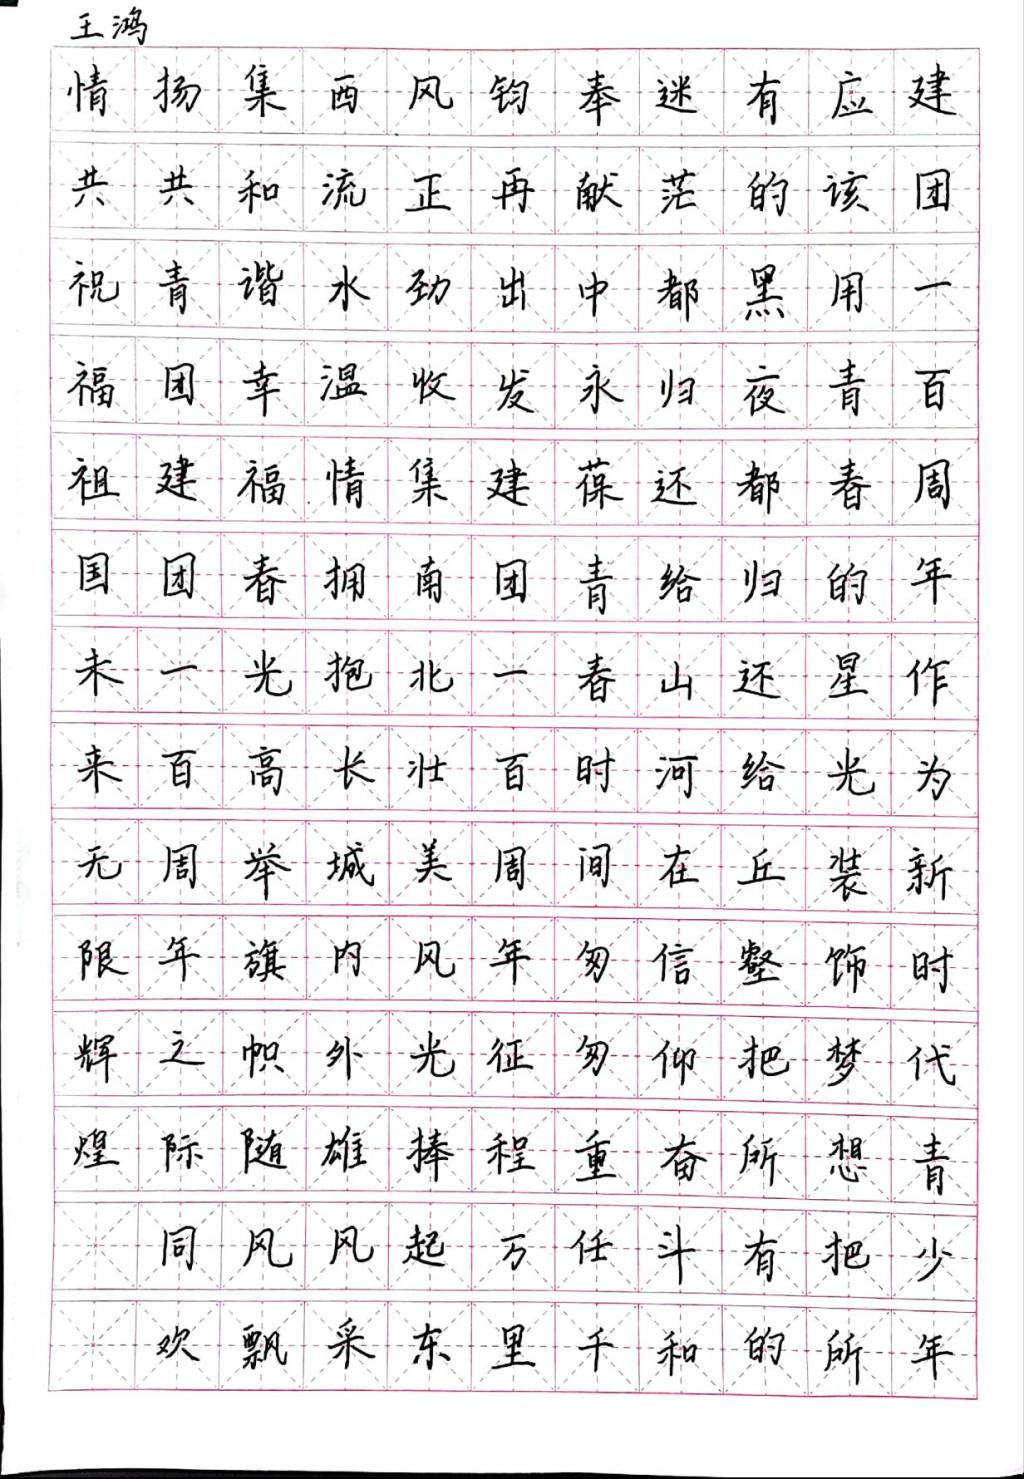 王鸿
建团一百周年作为新时代青少年
应该用青春的星光装饰梦想把所
有的黑夜都归还给丘壑把所有的
迷茫都归还给山河在信仰奋斗和
奉献中永葆青春时间匆匆重任千
钧再出发建团一百周年征程万里
风正劲收集南北壮美风光捧起东
西流水温情拥抱长城内外雄风采
集和谐幸福春光高举旗帜随风飘
扬共青团建团一百周年之际同欢
情共祝福祖国未来无限辉煌